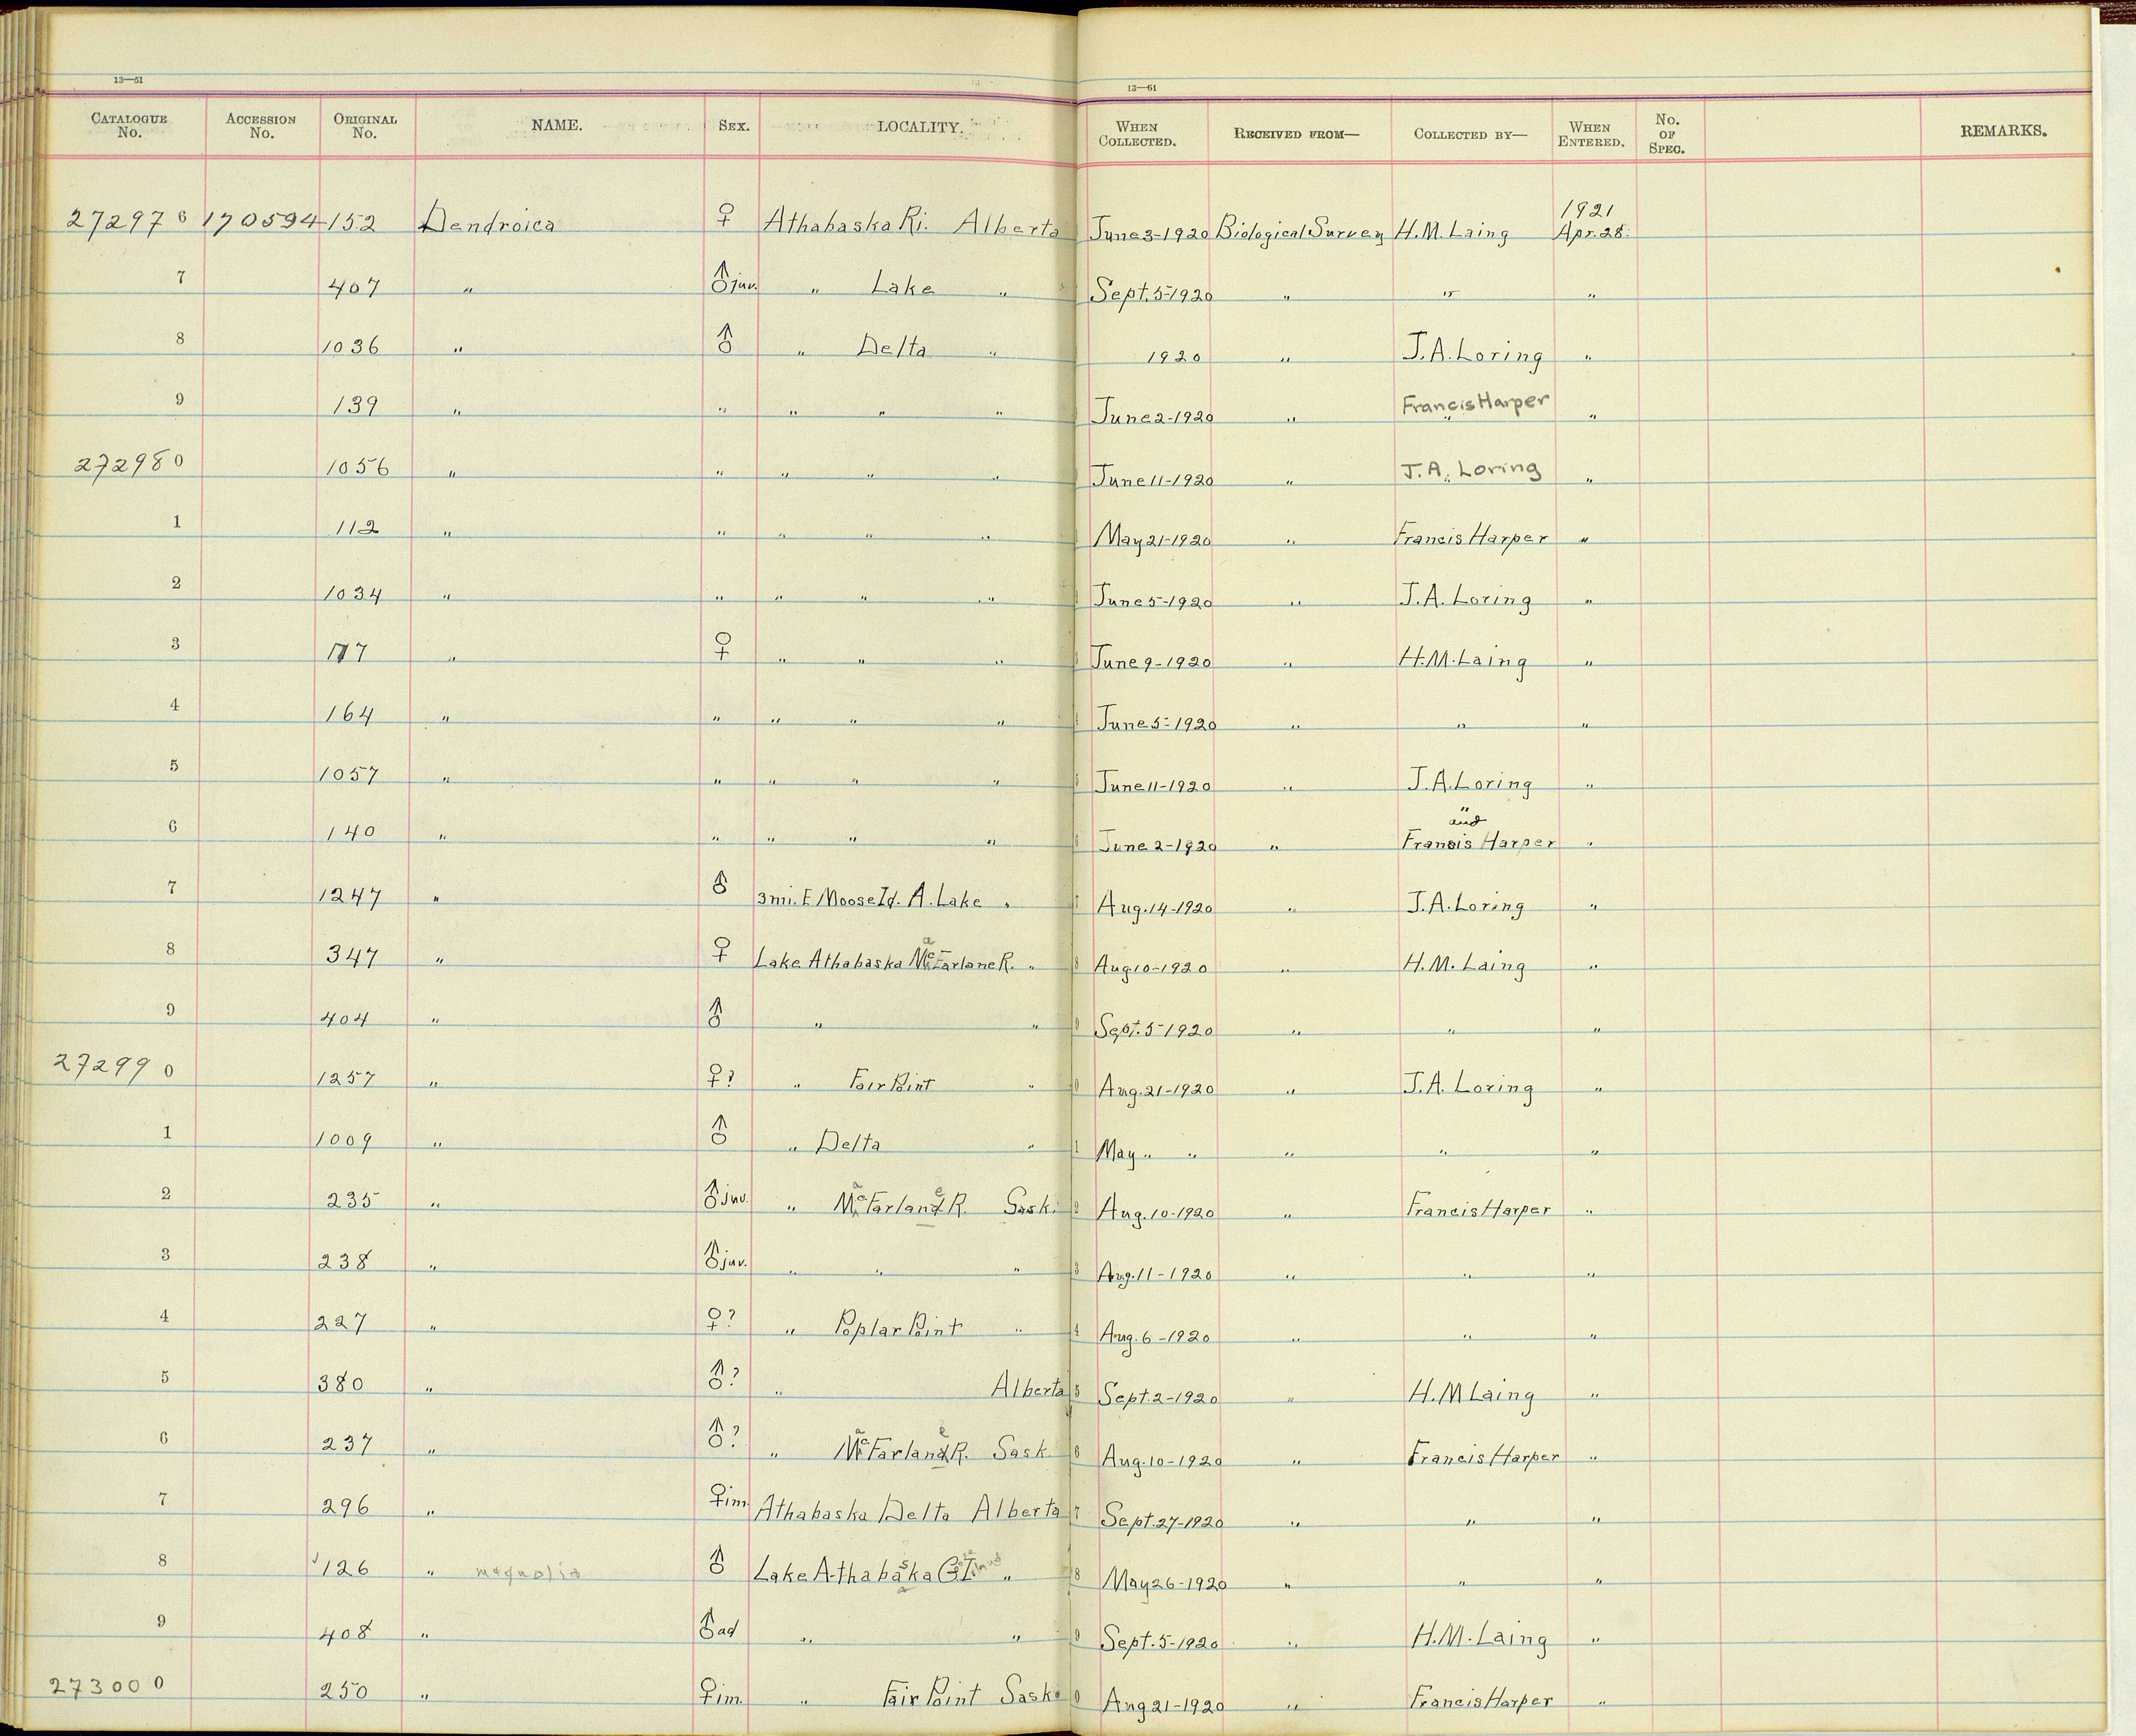 13—61 13—61
CATALOGUE No. ACCESSION No. ORIGINAL No. NAME. SEX. LOCALITY. WHEN COLLECTED. RECEIVED FROM— COLLECTED BY— WHEN ENTERED. No. OF SPEC. REMARKS.
272976 170594 152 Dendroica ♀ Athabaska Ri. Alberta June 3-1920 Biological Survey H.M. Laing 1921 Apr. 28.
7 407 " ♂ juv. " Lake " Sept. 5-1920 " " "
8 1036 " ♂ " Delta " 1920 " J.A. Loring "
9 139 " " " " " June 2-1920 " Francis Harper "
272980 1056 " " " " " June 11-1920 " J.A. Loring "
1 112 " " " " " 1 May 21-1920 " Francis Harper "
2 1034 " " " " " June 5-1920 " J.A. Loring "
3 177 " ♀ " " " June 9-1920 " H.M. Laing "
4 164 " " " " " June 5-1920 " " "
5 1057 " " " " " 5 June 11-1920 " J.A. Loring "
6 140 " " " " " 6 June 2-1920 " " and Francis Harper "
7 1247 " ♂ 3 mi. E Moose Id. A. Lake " 7 Aug. 14-1920 " J.A. Loring "
8 347 " ♀ Lake Athabaska McaFarlane R. " 8 Aug 10-1920 " H.M. Laing "
9 404 " ♂ " " 9 Sept. 5-1920 " " "
272990 1257 " ♀? " Fair Point " 0 Aug. 21-1920 " J.A. Loring "
1 1009 " ♂ " Delta " 1 May " " " " "
2 235 " ♂ juv. " McaFarlande R. Sask. 2 Aug. 10-1920 " Francis Harper "
3 238 " ♂ juv. " " " 3 Aug. 11-1920 " " "
4 227 " ♀? " Poplar Point " 4 Aug. 6-1920 " " "
5 380 " ♂? " Alberta 5 Sept. 2-1920 " H.M Laing "
6 237 " ♂? " McaFarlande R. Sask. 6 Aug. 10-1920 " Francis Harper "
7 296 " ♀ im. Athabaska Delta Alberta 7 Sept. 27-1920 " " "
8 126 " magnolia ♂ Lake Athabaska G.I. " 8 May 26-1920 " " "
9 408 " ♂ ad " " 9 Sept. 5-1920 " H.M. Laing "
273000 250 " ♀ im. " Fair Point Sask. 0 Aug 21-1920 " Francis Harper "